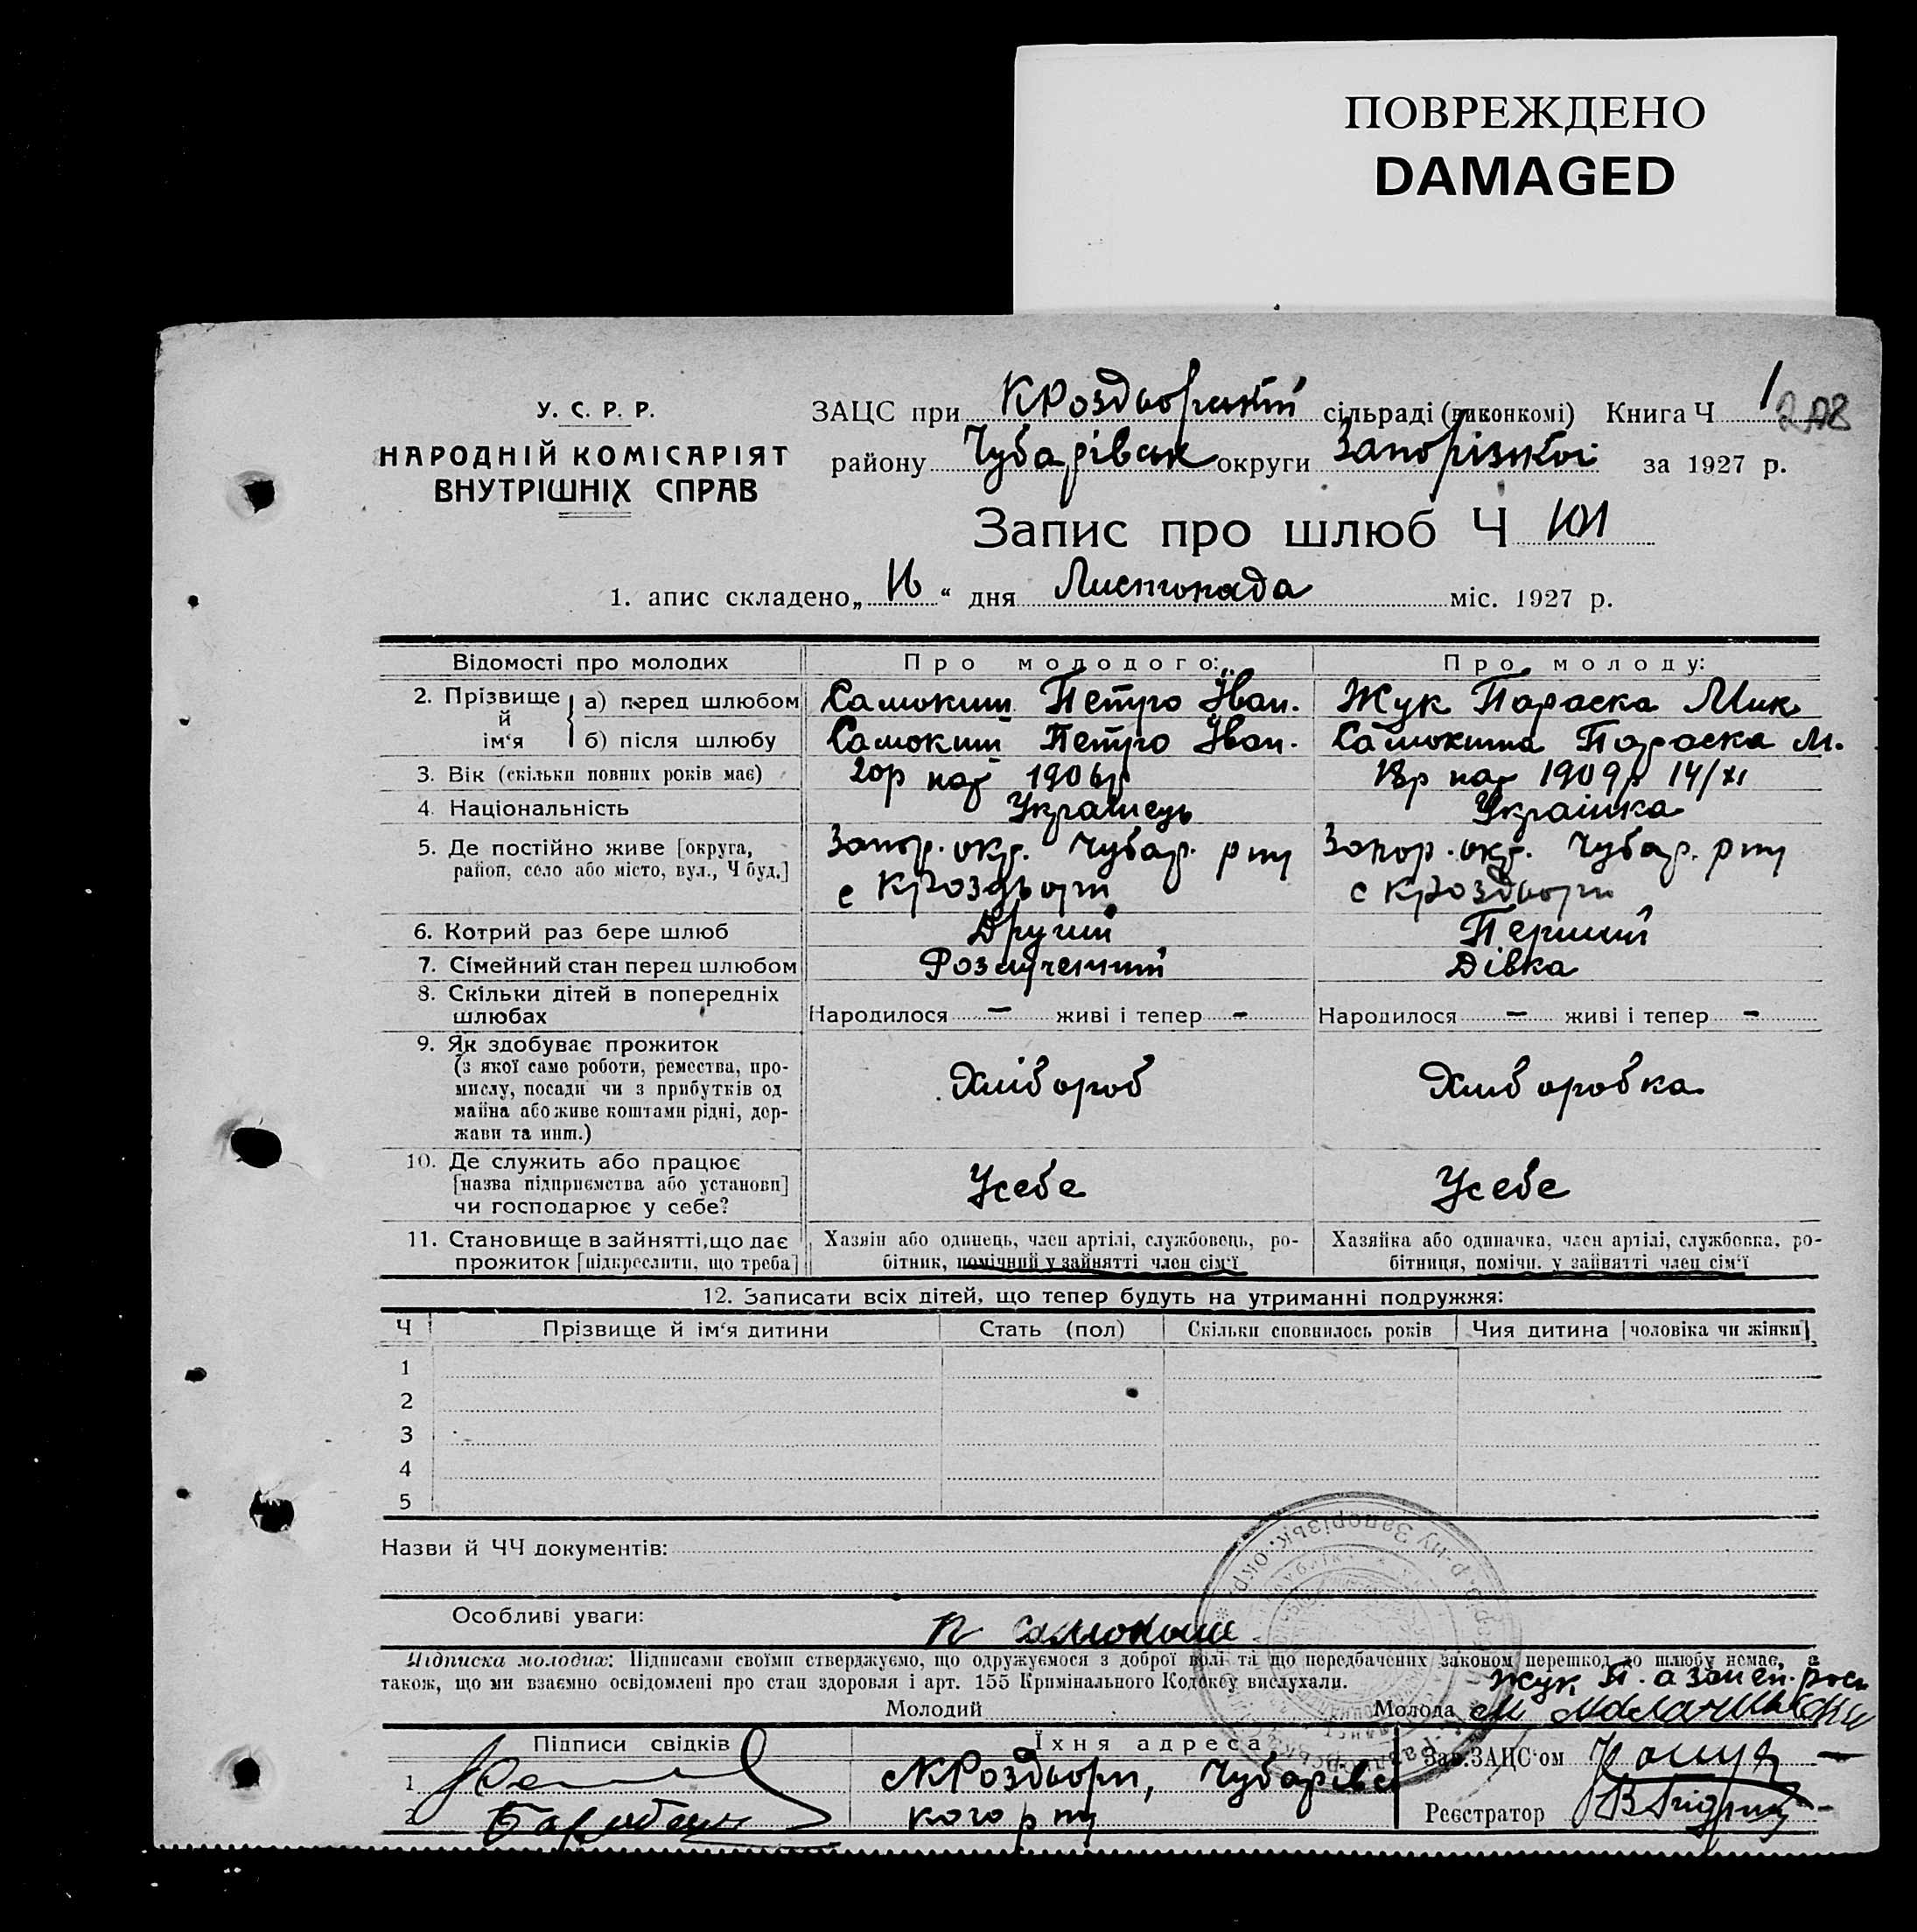 ПОВРЕЖДЕНО
DAMAGED
У. С. Р. Р.
НАРОДНІЙ КОМІСАРІЯТ
ВНУТРІШНІХ СПРАВ
ЗАЦС при КРоздорській сільраді (виконкомі) Книга Ч 1
району Чубарівськ округи Запорізької за 1927 р.
Запис про шлюб Ч 101
1. апис складено „16“ дня Листопада міс. 1927 р.
Відомості про молодих Про молодого: Про молоду:
2. Прізвище й ім‘я а) перед шлюбом Самокиш Петро Іван. Жук Параска Мик
б) після шлюбу Самокиш Петро Іван. Самокиша Параска М.
3. Вік (скільки повних років має) 20р нар 1906р 18р нар 1909р 14/XI
4. Національність Українець Українка
5. Де постійно живе [округа, Запор. окр. Чубар. р ну Запор. окр. Чубар. р ну
район, село або місто, вул., Ч буд.] с КРоздори с КРоздори
6. Котрий раз бере шлюб Другий Перший
7. Сімейний стан перед шлюбом Розлучений Дівка
8. Скільки дітей в попередніх
шлюбах Народилося — живі і тепер - Народилося — живі і тепер -
9. Як здобуває прожиток
(з якої саме роботи, ремества, про-
мислу, посади чи з прибутків од Хлібороб Хліборобка
майна або живе коштами рідні, дер-
жави та инш.)
10. Де служить або працює
[назва підприємства або установи] Усебе Усебе
чи господарює у себе?
11. Становище в зайнятті, що дає Хазяїн або одинець, член артілі, службовець, ро- Хазяйка або одиначка, член артілі, службовка, ро-
прожиток [підкреслити, що треба] бітник, помічний у зайнятті член сім‘ї бітниця, помічн. у зайнятті член сім‘ї
12. Записати всіх дітей, що тепер будуть на утриманні подружжя:
Ч Прізвище й ім‘я дитини Стать (пол) Скільки сповнилось років Чия дитина [чоловіка чи жінки]
1
2
3
4
5
Назви й ЧЧ документів:
Особливі уваги:
П Самокиш
Підписка молодих: Підписами своїми стверджуємо, що одружуємося з доброї волі та що передбачених законом перешкод до шлюбу немає, а
також, що ми взаємно освідомлені про стан здоровля і арт. 155 Кримінального Кодексу вислухали.
Жук П. а за неї
Молодий Молода
Підписи свідків Їхня адреса Зав. ЗАЦС‘ом
1 с КРоздори, Чубарівс
2 кого р ну Реєстратор